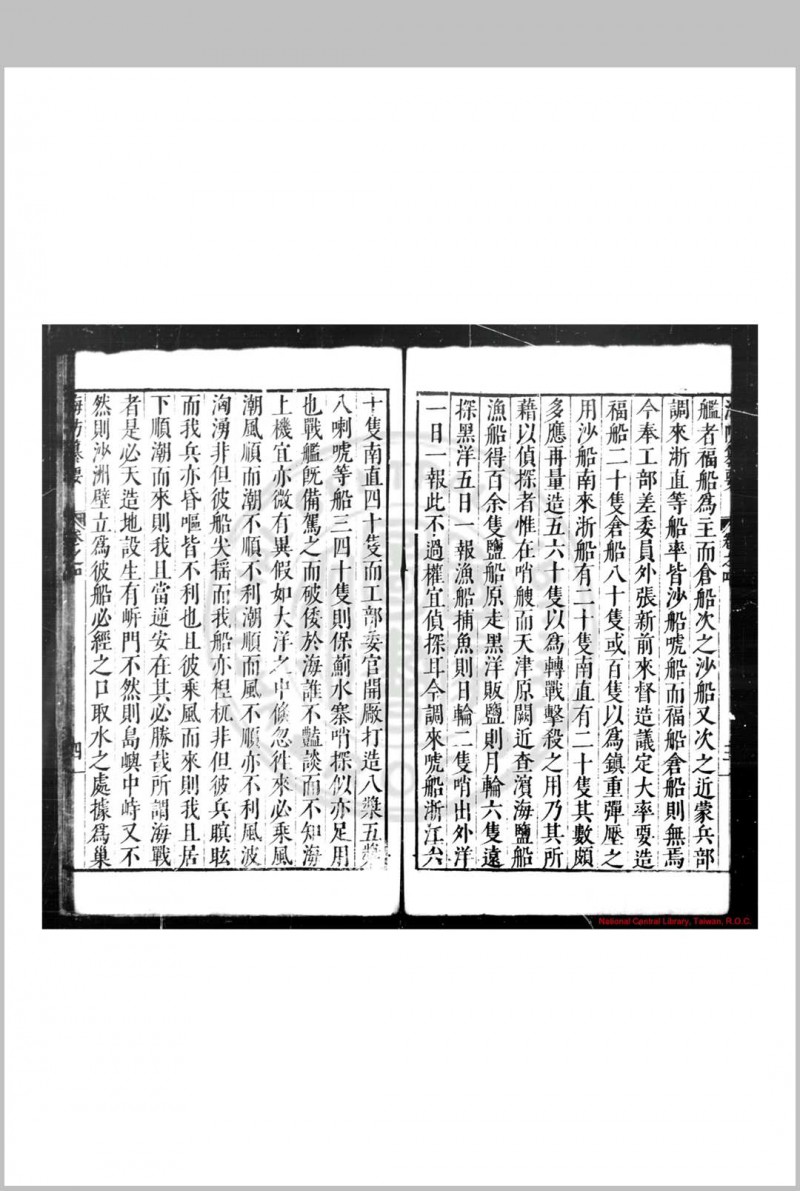 艦者福船爲主而倉船次之沙船又次之近蒙兵部
調來浙直等船率皆沙船唬船而福船倉船則無焉
今奉工部差委員外張新前來督造議定大率要造
福船二十隻倉船八十隻或百隻以爲鎮重彈壓之
用沙船南來浙船有二十隻南直有二十隻其數頗
多應再量造五六十隻以爲轉戰擊殺之用乃其所
藉以偵探者惟在哨艘而天津原闕近查濱海鹽船
漁船得百余隻鹽船原走黑洋販鹽則月輪六隻遠
探黑洋五日一報漁船捕魚則日輪二隻哨出外洋
一日一報此不過權宜偵探耳今調來唬船浙江六
十隻南直四十隻而工部委官開厰打造八槳五槳
八喇唬等船三四十隻則保薊水寨哨探似亦足用
也戰艦旣備駕之而破倭於海誰不豔談而不知海
上機宜亦微有異假如大洋之中倏忽徃來必乘風
潮風順而潮不順不利潮順而風不順亦不利風波
洶湧非但彼船尖摇而我船亦桯杌非但彼兵瞑眩
而我兵亦昏嘔皆不利也且彼乘風而來則我且居
下順潮而來則我且當逆安在其必勝哉所謂海戰
者是必天造地設生有㟁門不然則島嶼中峙又不
然則沙洲壁立爲彼船必經之口取水之處據爲巢
海防纂要
卷之四
四
National Central Library, Taiwan, R.O.C.